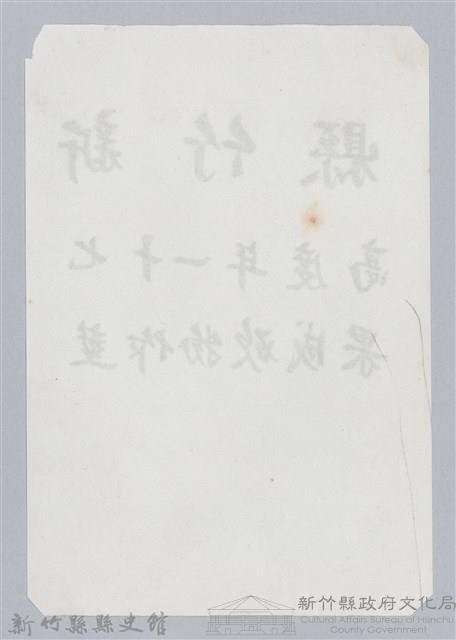 新竹縣
七十一年度高
莖作物成果
新竹縣縣史館
新竹縣政府文化局
Cultural Affairs Bureau of Hsinchu
County Government